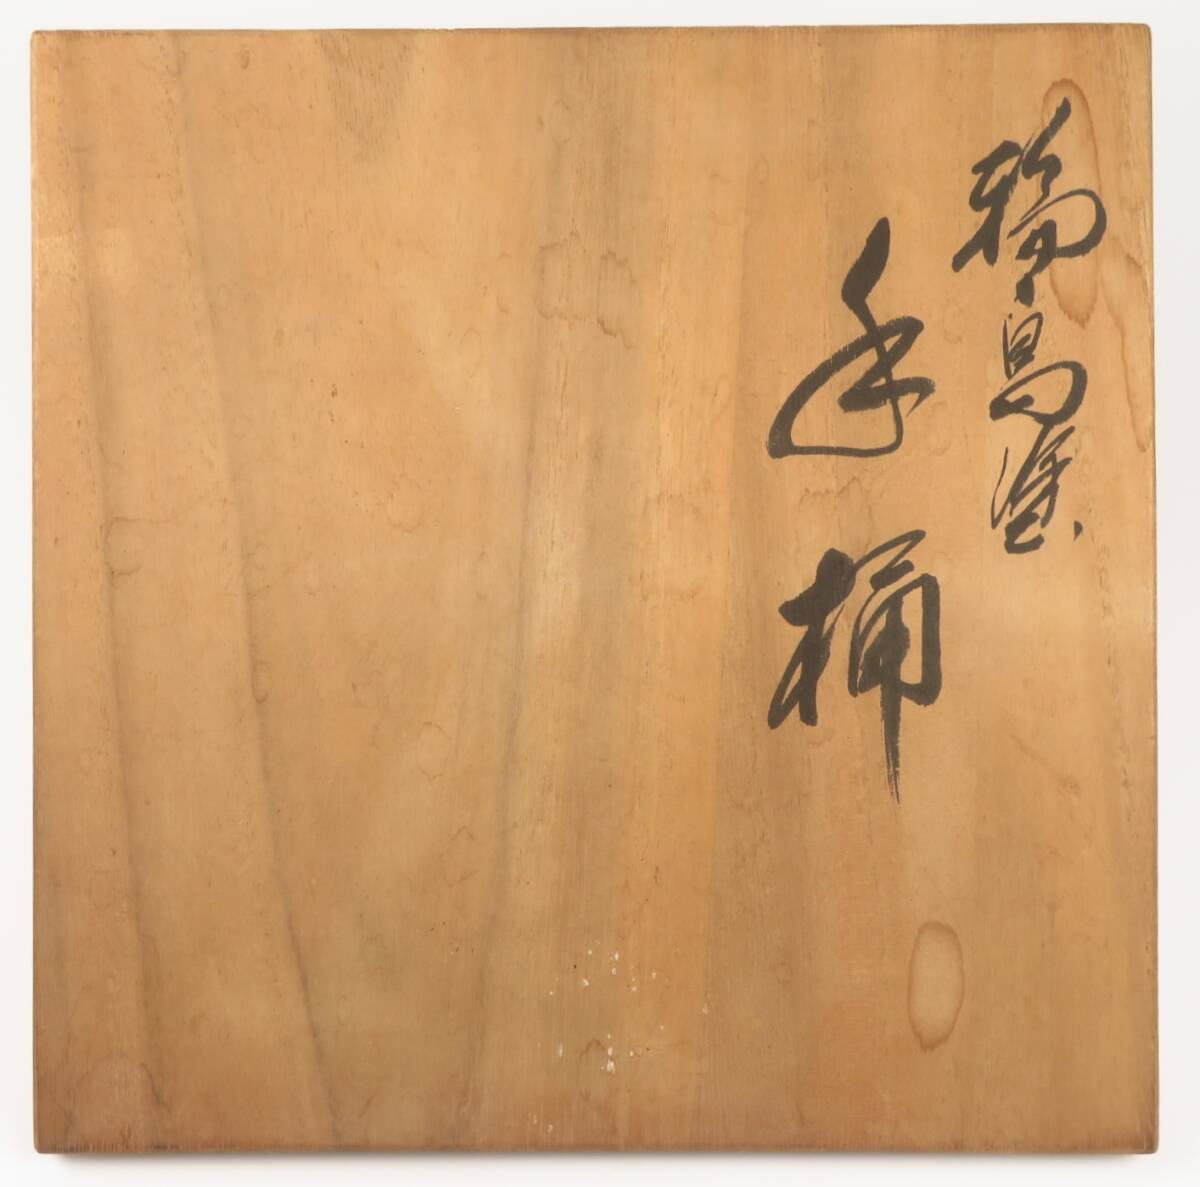 輪島塗
手桶